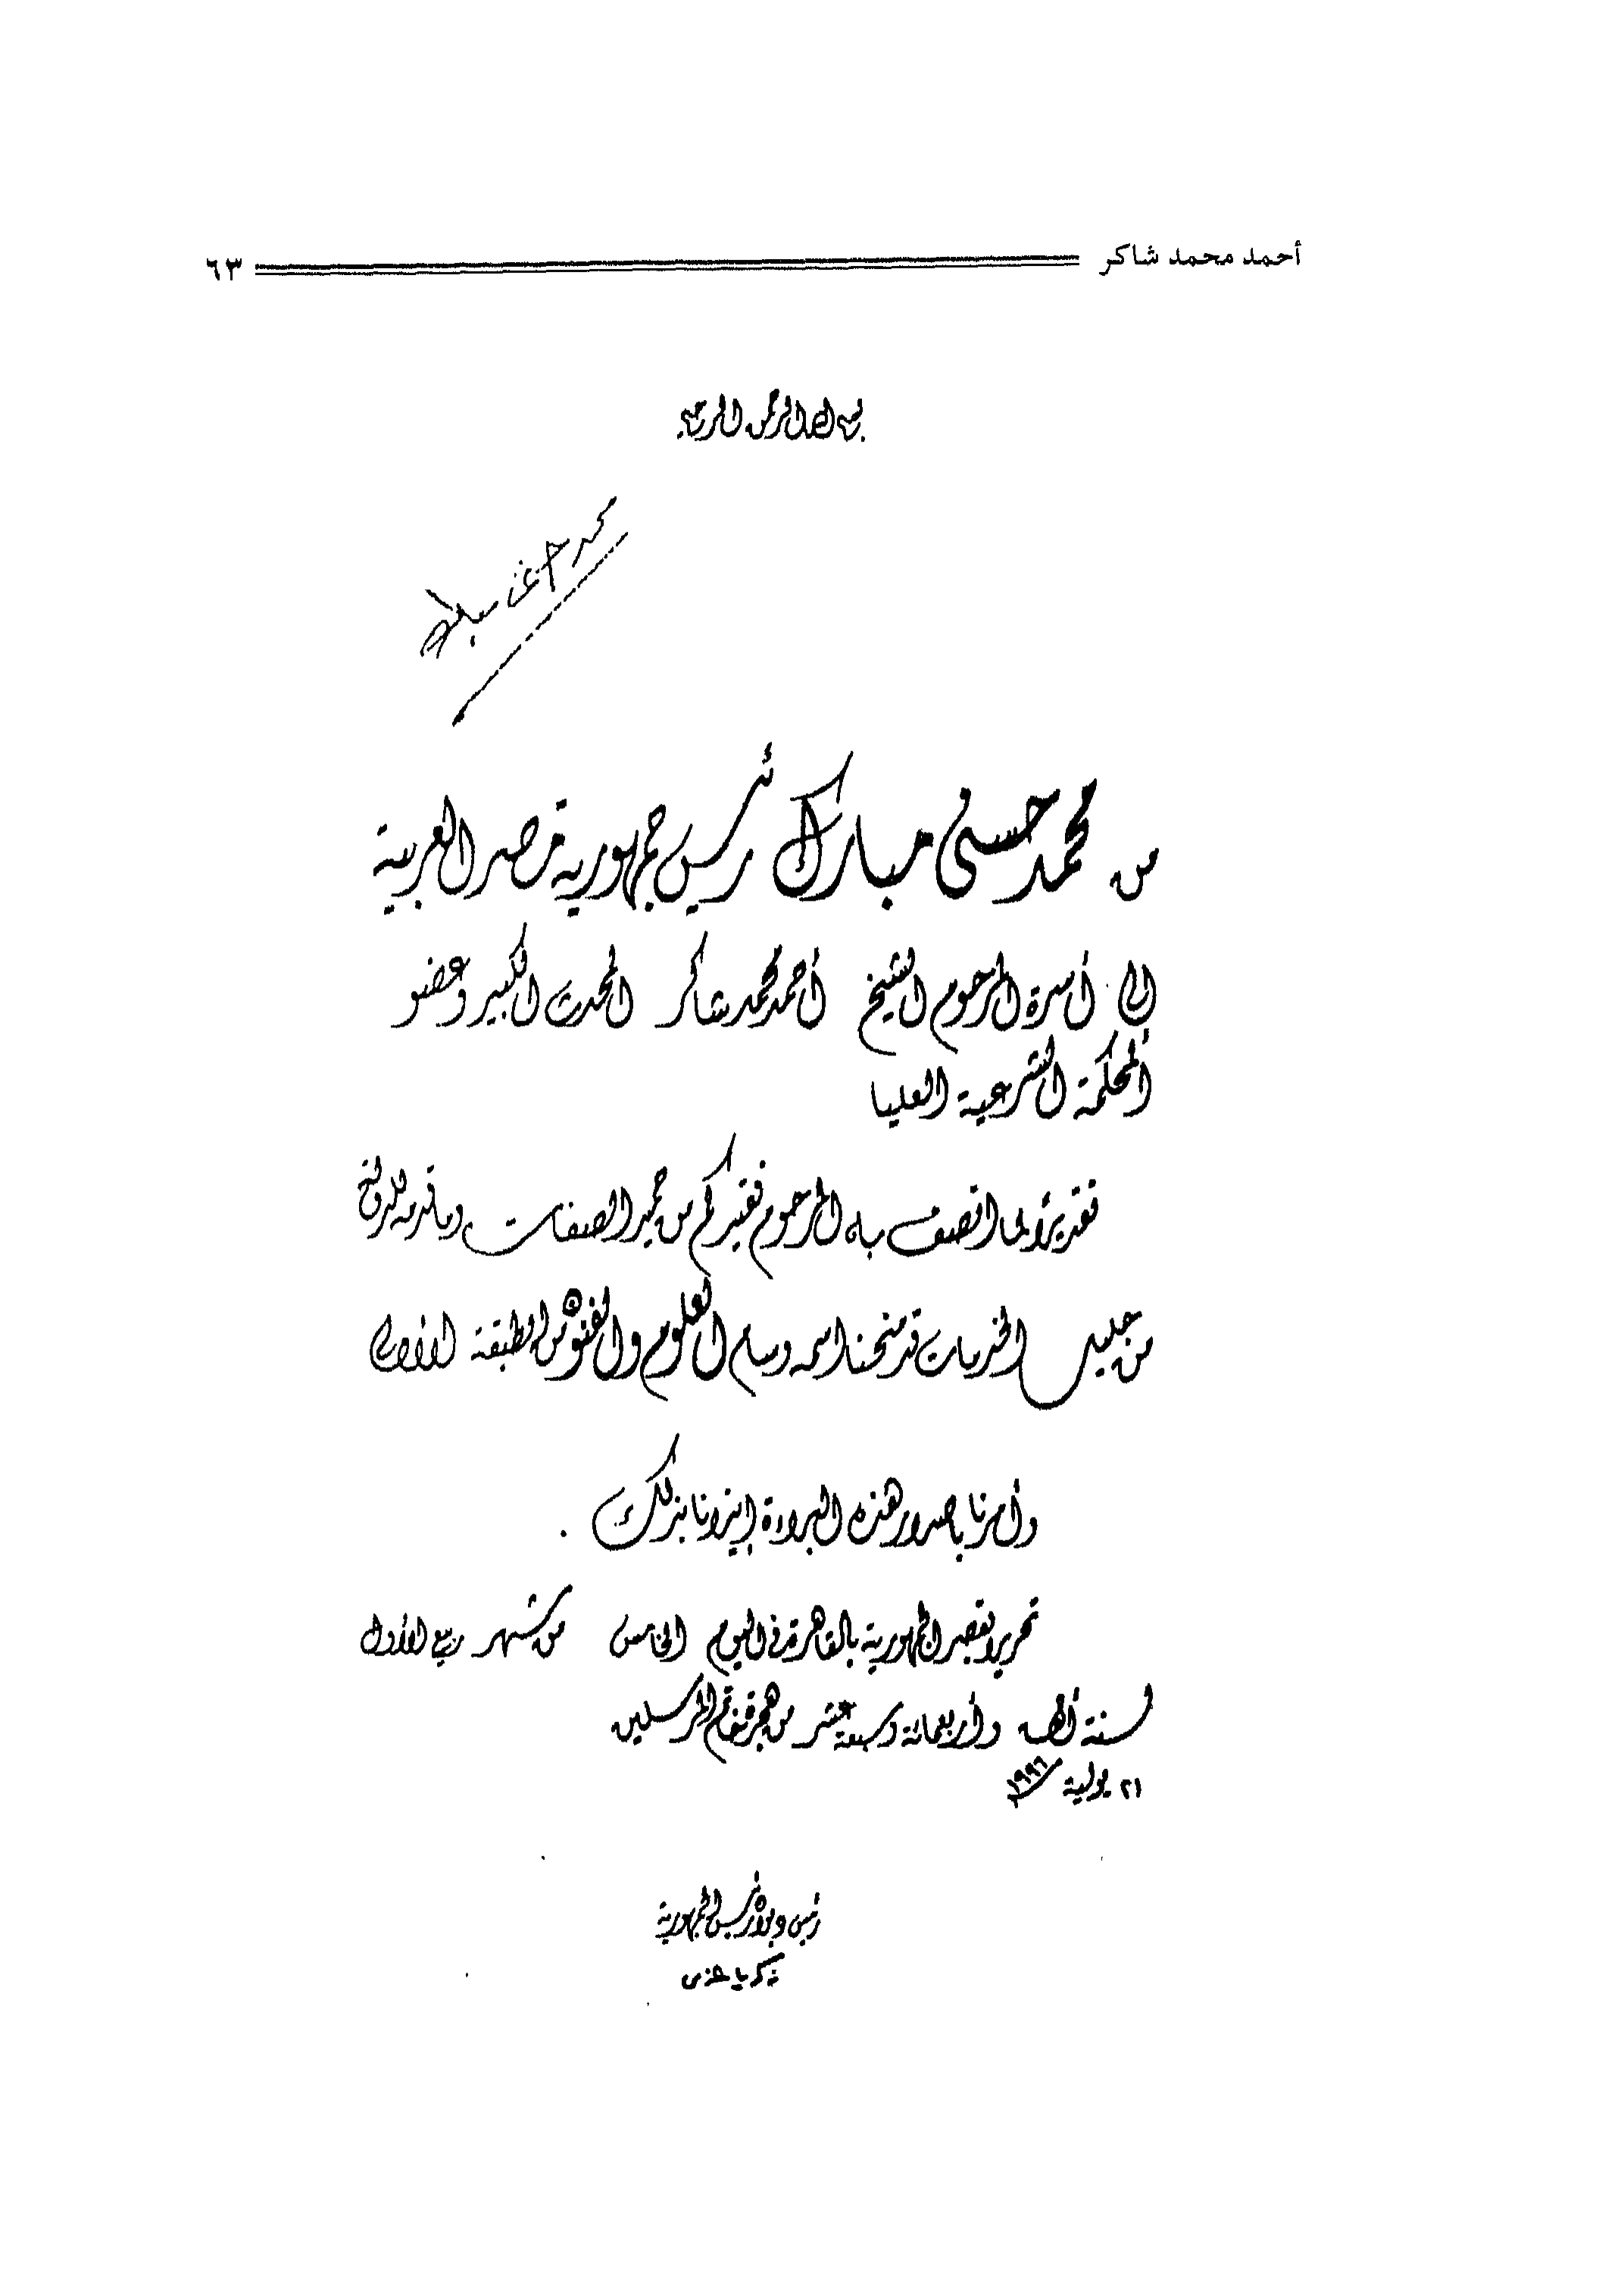 أحمد محمد شاكر ٦٣
بسم الله الرحمن الرحيم
محمد حسنى مبارك
من محمد حسنى مبارك رئيس جمهورية مصر العربية
إلى أسرة المرحوم الشيخ أحمد محمد شاكر المحدث الكبير وعضو
المحكمة الشرعية العليا
تقديرًا لما اتصف به المرحوم فقيدكم من حميد الصفات وما قدمه
من جليل الخدمات قد منحنا اسمه وسام العلوم والفنون من الطبقة الأولى
وأمرنا بإصدار هذه البراءة إيذانا بذلك .
تحريرا بقصر الجمهورية بالقاهرة فى اليوم الخامس من شهر ربيع الأول
لسنة ألف وأربعمائة وسبعة عشر من هجرة خاتم المرسلين
٢١ يولية ١٩٩٦
رئيس ديوان رئيس الجمهورية
زكريا عزمى